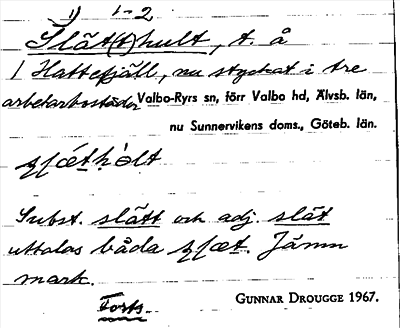 1) 1-2
Slät(t)hult, t. å
1 Hattefjäll, nu styckat i tre
arbetarbostäder Valbo-Ryrs sn, förr Valbo hd, Älvsb. län,
nu Sunnervikens doms., Göteb. län.
Subst. slätt och adj. slät
uttalas båda
Jämn
mark.
Forts.
GUNNAR DROUGGE 1967.